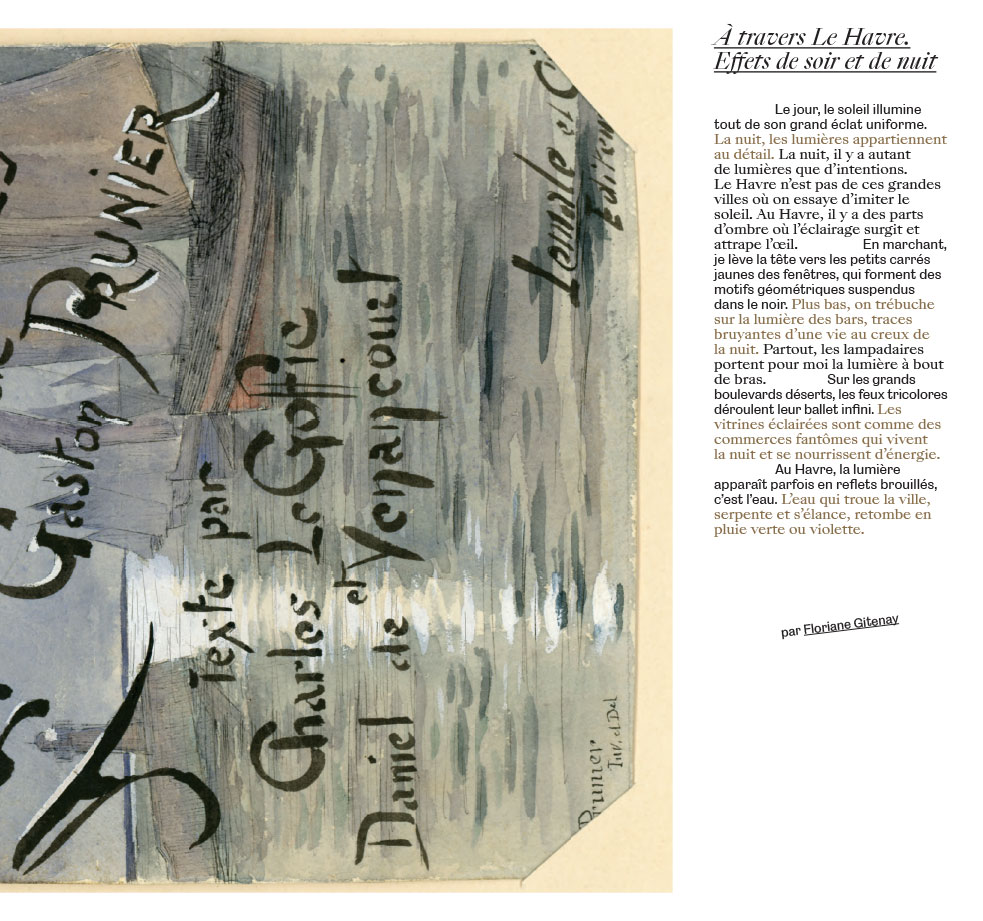 Gaston PRUNIER
Texte par
Charles Le Goffic
et
Daniel de Venancourt
Lemale et
Prunier
Inv. et Del
À travers Le Havre.
Effets de soir et de nuit
Le jour, le soleil illumine
tout de son grand éclat uniforme.
La nuit, les lumières appartiennent
au détail. La nuit, il y a autant
de lumières que d’intentions.
Le Havre n’est pas de ces grandes
villes où on essaye d’imiter le
soleil. Au Havre, il y a des parts
d’ombre où l’éclairage surgit et
attrape l’œil. En marchant,
je lève la tête vers les petits carrés
jaunes des fenêtres, qui forment des
motifs géométriques suspendus
dans le noir. Plus bas, on trébuche
sur la lumière des bars, traces
bruyantes d’une vie au creux de
la nuit. Partout, les lampadaires
portent pour moi la lumière à bout
de bras. Sur les grands
boulevards déserts, les feux tricolores
déroulent leur ballet infini. Les
vitrines éclairées sont comme des
commerces fantômes qui vivent
la nuit et se nourrissent d’énergie.
Au Havre, la lumière
apparaît parfois en reflets brouillés,
c’est l’eau. L’eau qui troue la ville,
serpente et s’élance, retombe en
pluie verte ou violette.
par Floriane Gitenay